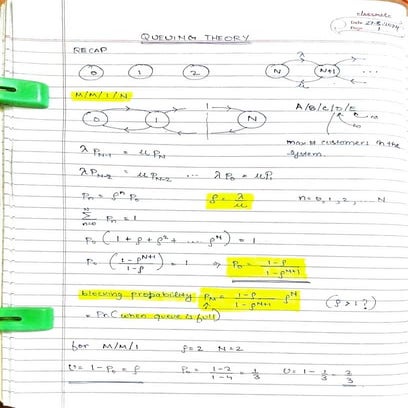 classmate
Date
Page
QUEUING THEORY
RECAP
0 1 2 N N+1 ...
λ
μ
M/M/1/N
A/B/C/D/E
0 1 N
∞
∞
max # customers in the
system.
λ P_N-1 = μ P_N
λ P_N-2 = μ P_N-2 ... λ P_0 = μ P_1
P_n = ρ^n P_0 ρ = λ/μ n = 0, 1, 2, ... N
Σ_{n=0}^{N} P_n = 1
P_0 (1 + ρ + ρ^2 + ... ρ^N) = 1
P_0 ((1-ρ^{N+1})/(1-ρ)) = 1 ⇒ P_0 = (1-ρ)/(1-ρ^{N+1})
blocking probability P_N = (1-ρ)/(1-ρ^{N+1}) ρ^N (ρ>1?)
= Pr( when queue is full)
for M/M/1 ρ=2 N=2
U = 1-P_0 = ρ P_0 = (1-2)/(1-4) = 1/3 U = 1 - 1/3 = 2/3